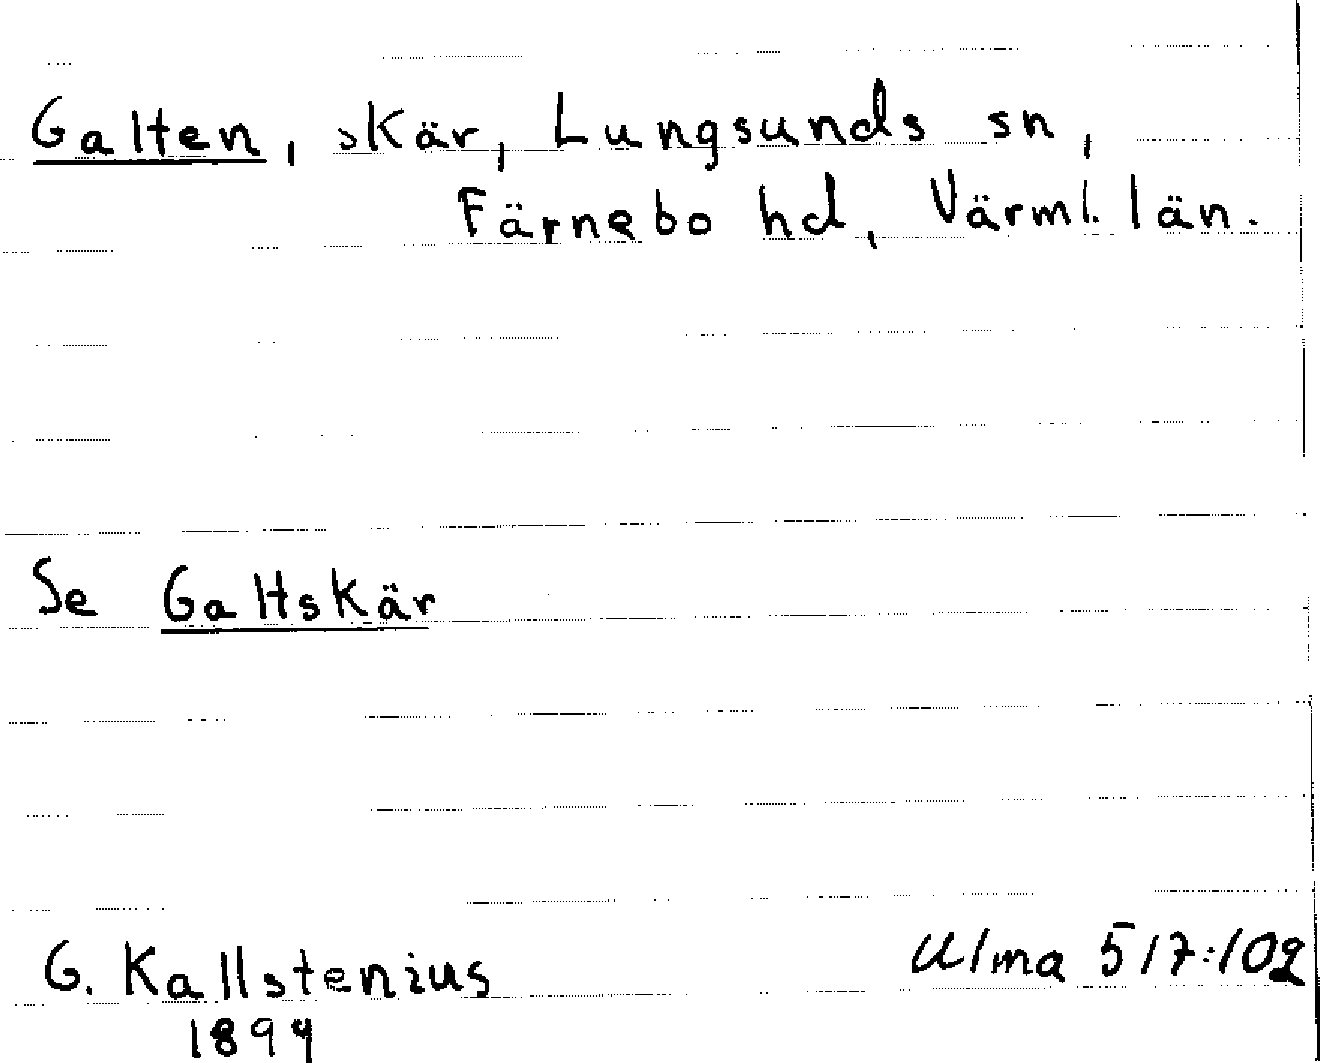 Galten, skär, Lungsunds sn,
Färnebo hd, Värml. län.
Se Galtskär
G. Kallstenius
1899
Ulma 517:102